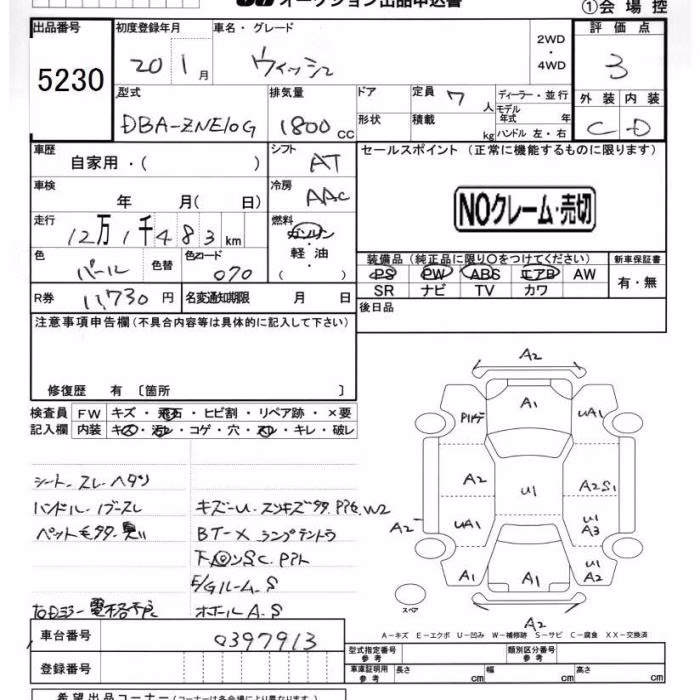 オークション出品申込書
①会場控
出品番号 初度登録年月 車名・グレード 評価点
5230 20 1月 ウィッシュ 2WD ・ 4WD 3
型式 排気量 ドア 定員 7人 ディーラー・並行 外装 内装
DBA-ZNE10G 1800cc 形状 積載 kg モデル年式 年 ハンドル 左・右 C D
車歴 自家用・( ) シフト AT セールスポイント (正常に機能するものに限ります)
車検 年 月( 日) 冷房 AAC NOクレーム・売切
走行 12万1千483km 燃料 ガソリン・軽油・( )
色 パール 色替 色コード 070 装備品(純正品に限り○をつけてください) 新車保証書
PS PW ABS エアB AW 有・無
R券 11,730円 名変通知期限 月 日 SR ナビ TV カワ
注意事項申告欄(不具合内容等は具体的に記入して下さい) 後日品
修復歴 有 〔箇所 〕
検査員 FW キズ・飛石・ヒビ割・リペア跡・×要
記入欄 内装 キズ・汚レ・コゲ・穴・スレ・キレ・破レ
シート スレ ヘタリ
ハンドル
ペット毛
BT-X
E/Gルーム.S
A2
A1
UA1
A2
U1
A2S1
A2
UA1
U1
A3
A1
A1
U1
A2
スペア
A2
A-キズ E-エクボ U-凹み W-補修跡 S-サビ C-腐食 XX-交換済
車台番号 0397913
型式指定番号 参考 類別区分番号 参考
登録番号 車庫証明用 参考 長さ cm 幅 cm 高さ cm
希望出品コーナー(コーナー名は各会場により異なります)